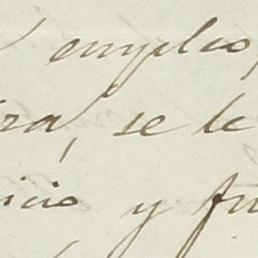 empleo,
ira, se le
icio y fu